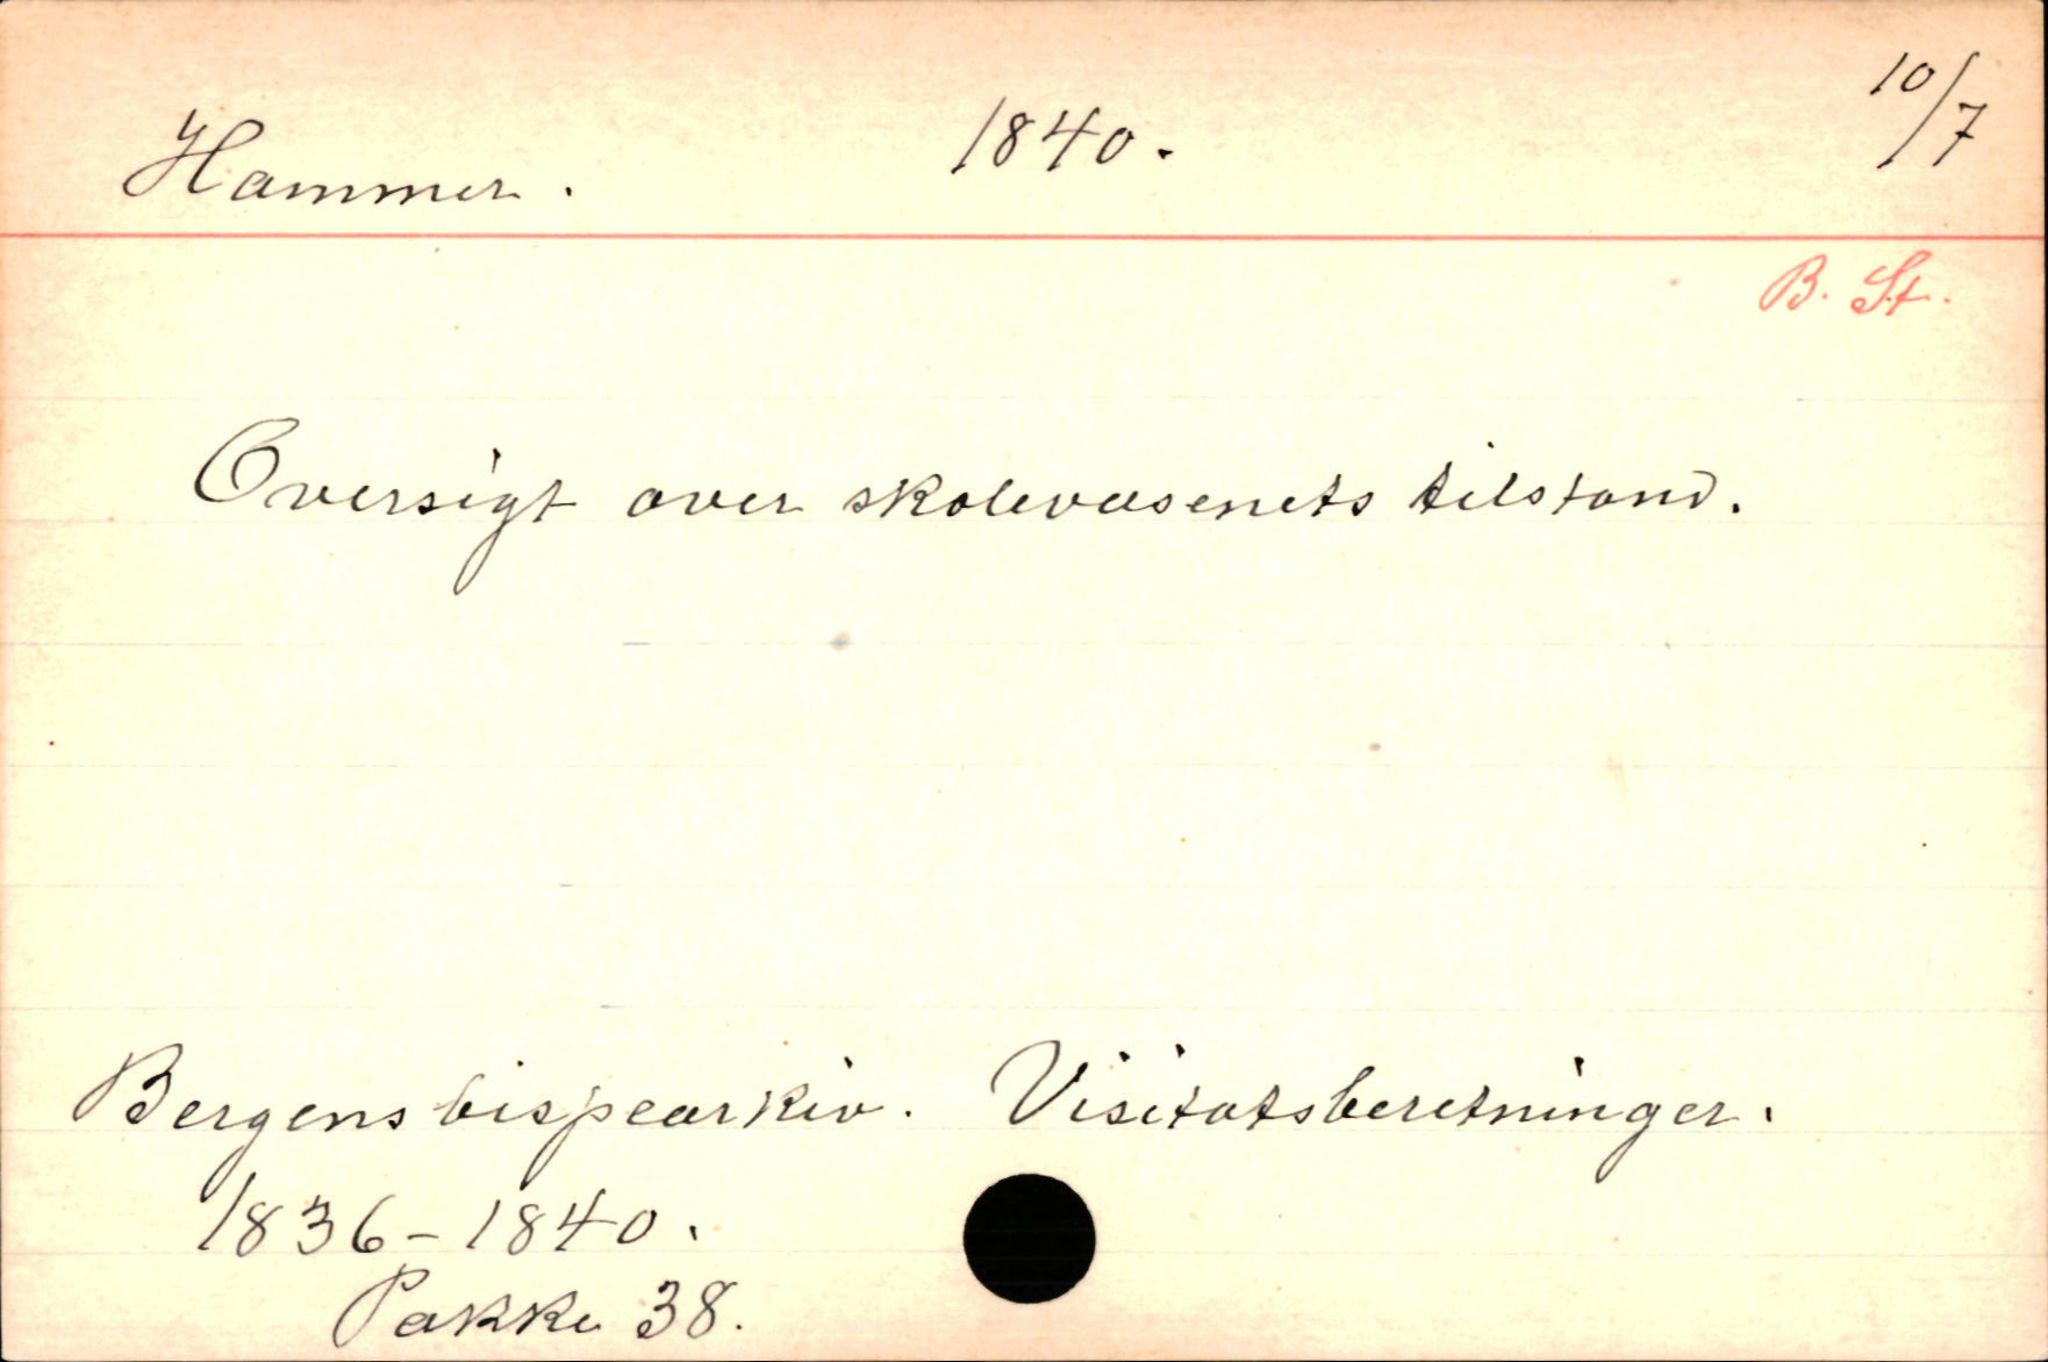 Hammer. 1840. 10/7
B. St.
Oversigt over skolevæsenets tilstand.
Bergens bispearkiv. Visitatsberetninger.
1836-1840.
Pakke 38.